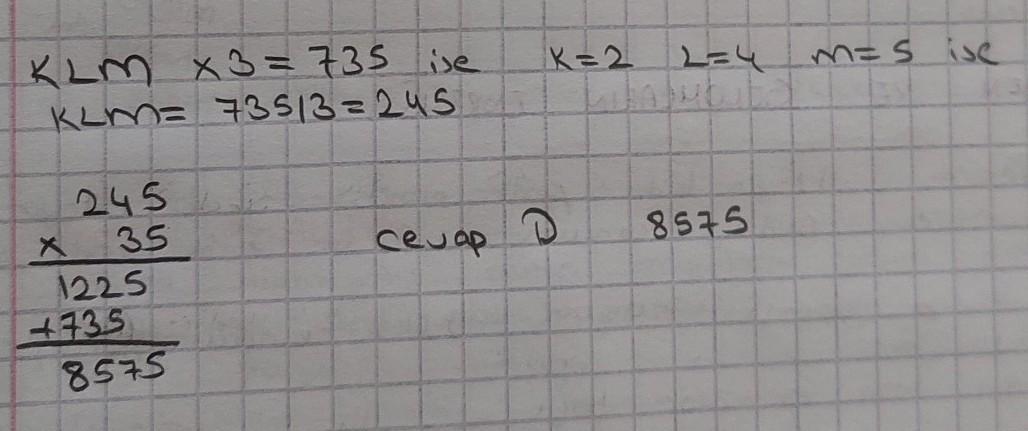 KLM x3 = 735 ise K=2 L=4 m=5 ise
KLM= 735/3=245
245
x 35
1225
+735
8575
cevap D 8575